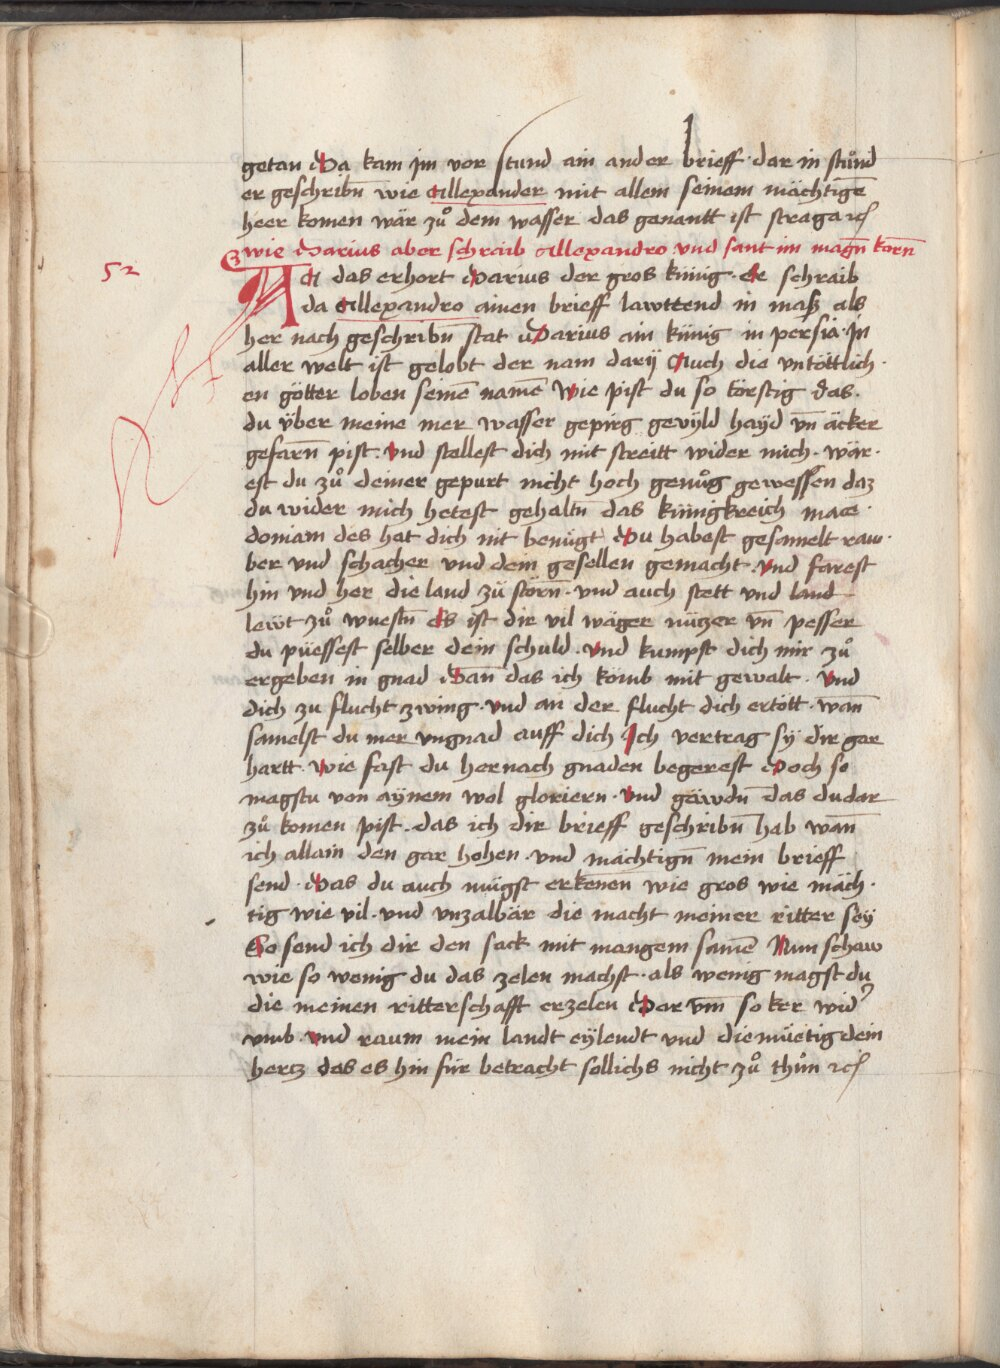 getan Da kam im vor stund ain ander brieff · dar in stůnd
er geschribn̄ wie Allexander mit allem seinem mächtigē
heer komen wär zů dem wasser das genantt ist straga ⁊c
wie Darius aber schraib Allexandro vnd sant im magn̄ korn̄
52
Da das erhort Darius der gros künig · Er schraib
da Allexandro ainen brieff lawttend in maß als
her nach geschribn̄ stat Darius ain künig in persia · In
aller welt ist gelobt der nam darij Auch die vntöttlich ·
en götter loben seinē namē Wie pist du so törstig das ·
du v̈ber meine mer wasser gepirg gevyld hayd vn̄ äcker
gefarn̄ pist · Vnd stellest dich mit streitt wider mich · wär ·
est du zů deiner gepurt nicht hoch genůg gewessen daz
du wider mich hetest gehaltn̄ das küngkreich mace ·
doniam des hat dich nit benügt Du habest gesamelt raw ·
ber vnd schacher vnd dein gesellen gemacht · Vnd farest
hin vnd her die land zů störn̄ · vnd auch stett vnd land
lewt zů wuestn̄ Es ist dir vil wäger nützer vn̄ pesser
du püessest selber dein schuld · Vnd kumpst dich mir zů
ergeben in gnad Dan̄ das ich komb mit gewalt · Vnd
dich zu flucht zwing · vnd an der flucht dich ertött · wan̄
samelst du mer vngnad auff dich Ich vertrag sy dir gar
hartt · Wie fast du hernach gnaden begerest Doch so
magstu von aynem wol gloriern · Vnd gäwdn̄ das du dar
zů komen pist · das ich dir brieff geschribn̄ hab wan̄
ich allain den gar hohen · vnd mächtign̄ mein brieff
send · Das du auch mügst erkenen wie gros wie mäch ·
tig wie vil · vnd vnzalbär die macht meiner ritter sey
So send ich dir den sack mit mangem samē Nun schaw
wie so wenig du das zelen machst · als wenig magst du
die meinen ritterschafft erzelen Dar vm̄ so ker wid᾽
vmb · Vnd raum mein landt eylendt vnd diemüetig dein
hercz das es hin für betracht sollichs nicht zů thůn ⁊c